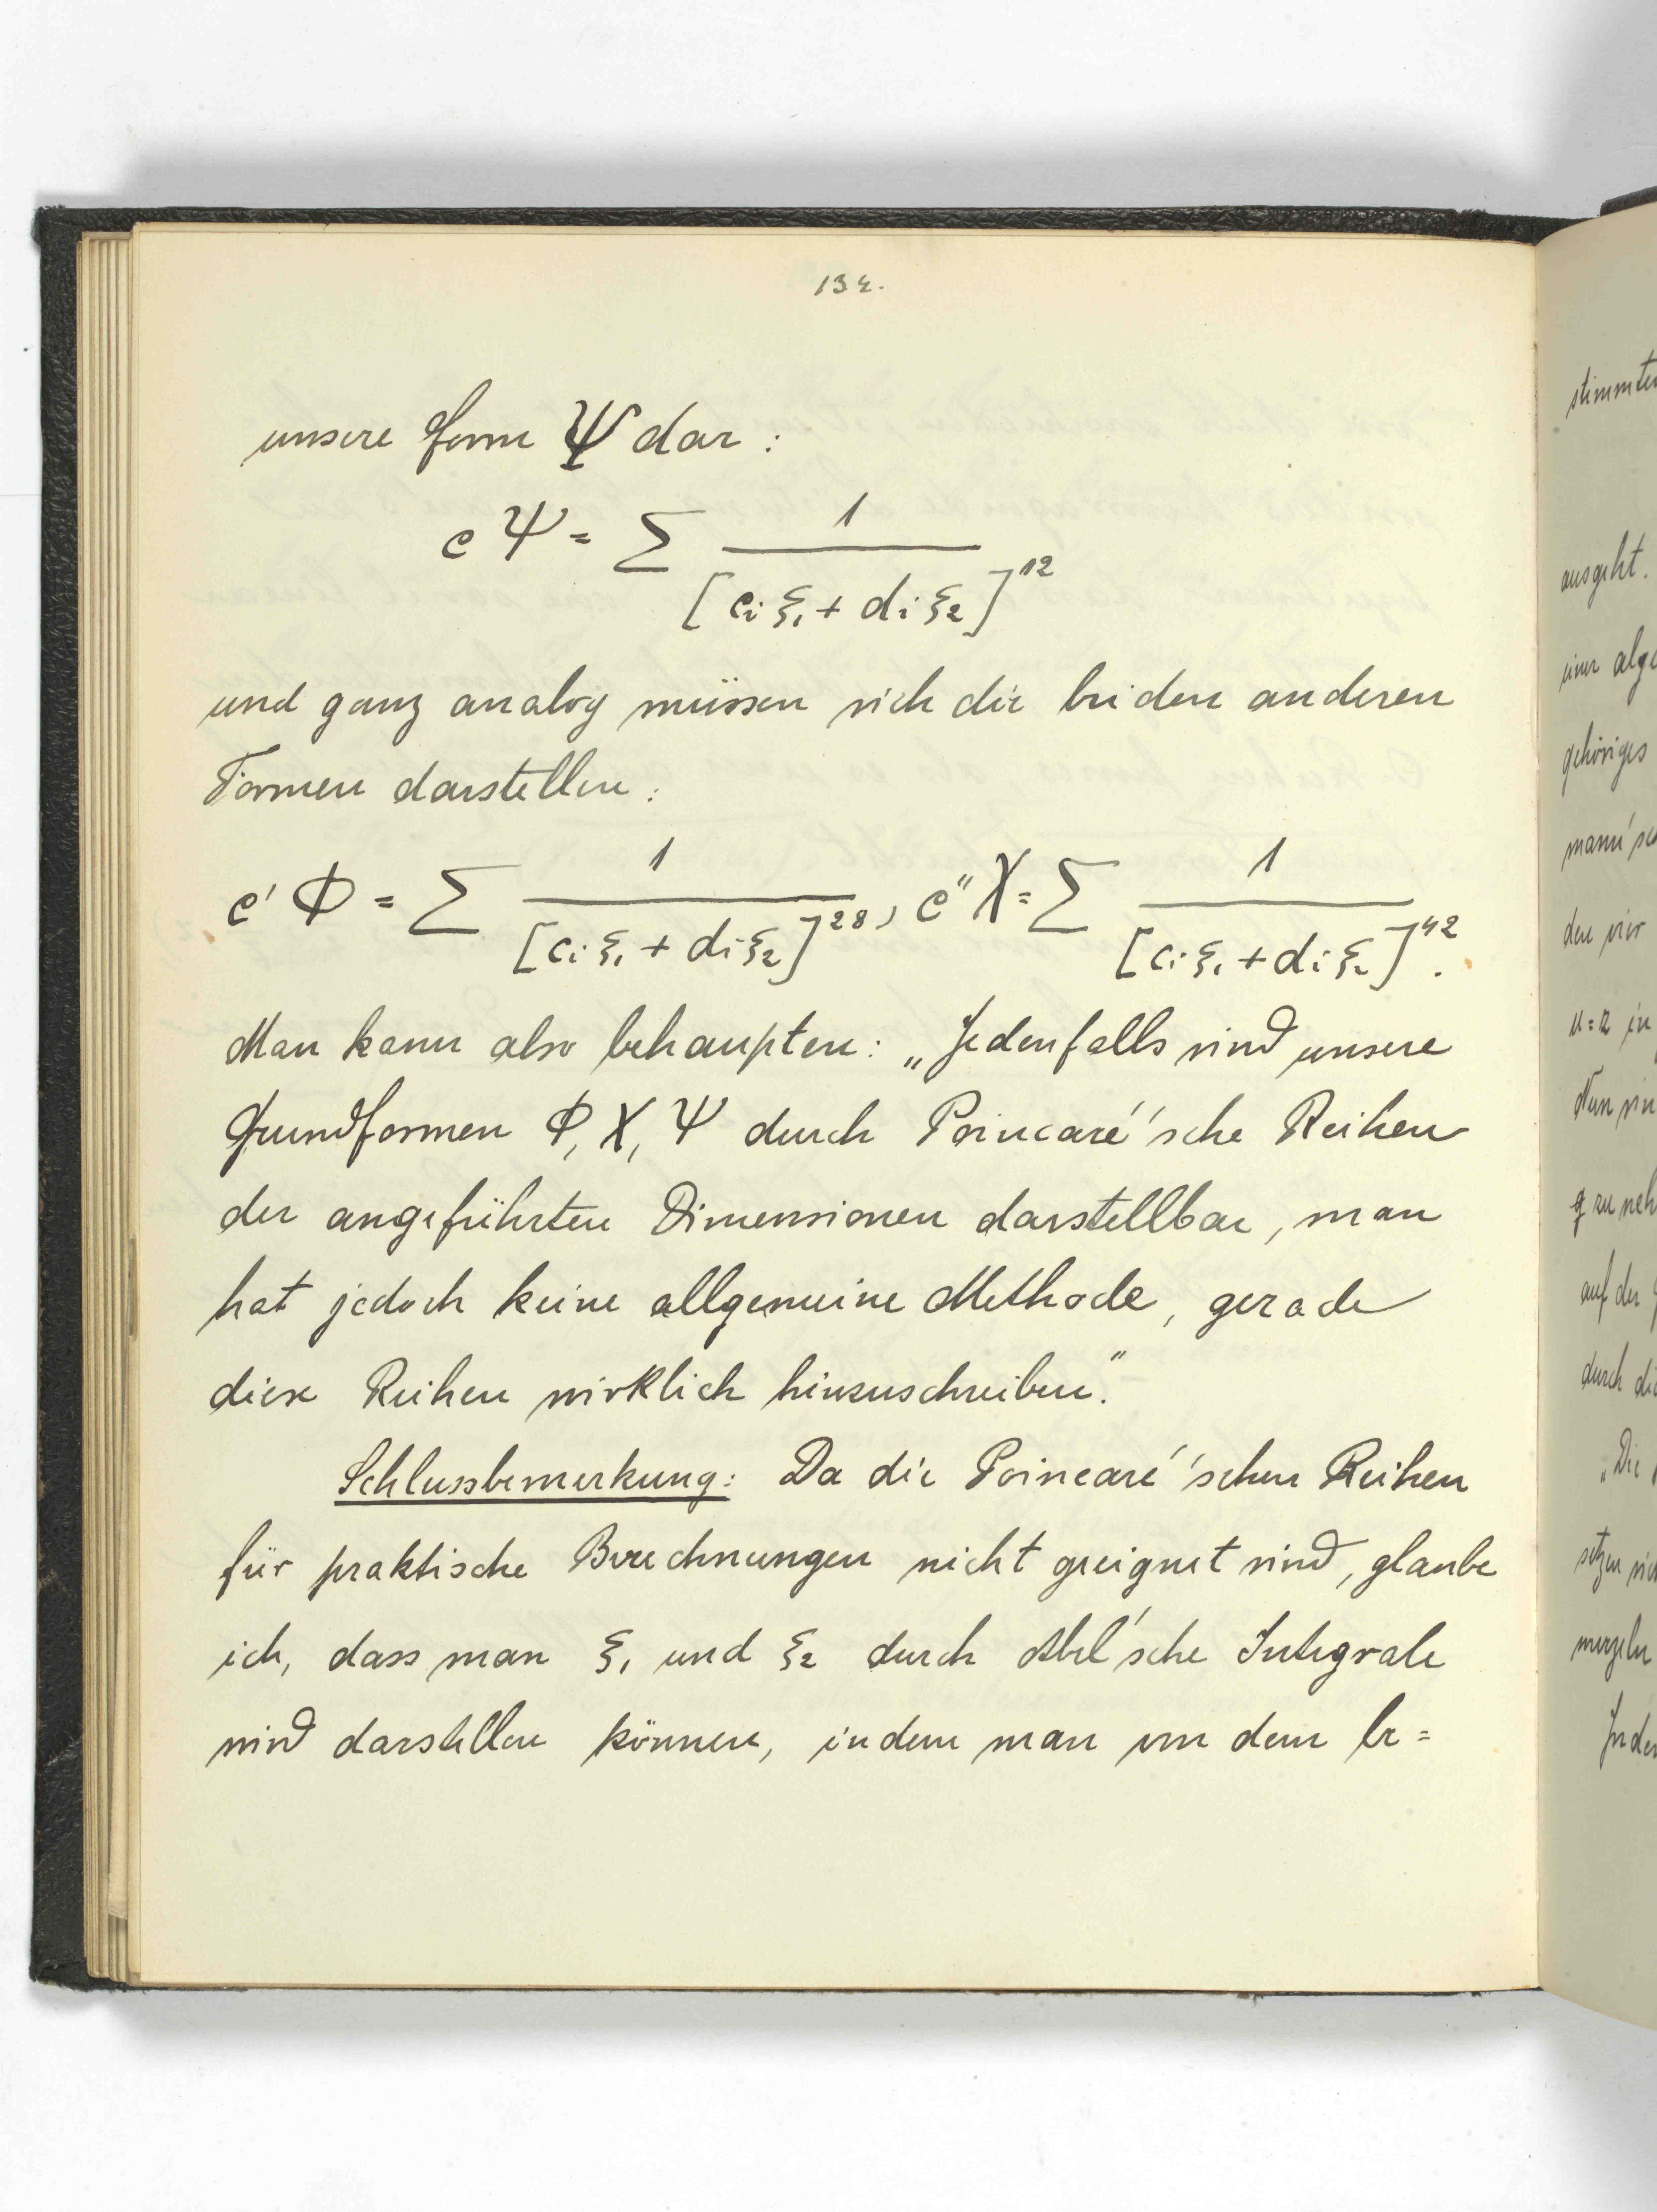 134.
unsere Form Ψ dar:
c Ψ = Σ 1 / [c_i ξ_1 + d_i ξ_2]^12
und ganz analog müssen sich die beiden anderen
Formen darstellen:
c' Φ = Σ 1 / [c_i ξ_1 + d_i ξ_2]^28, c'' X = Σ 1 / [c_i ξ_1 + d_i ξ_2]^42.
Man kann also behaupten: „Jedenfalls sind unsere
Grundformen Φ, X, Ψ durch Poincaré'sche Reihen
der angeführten Dimensionen darstellbar, man
hat jedoch keine allgemeine Methode, gerade
diese Reihen wirklich hinzuschreiben."
Schlussbemerkung: Da die Poincaré'schen Reihen
für praktische Berechnungen nicht geeignet sind, glaube
ich, dass man ξ_1 und ξ_2 durch Abel'sche Integrale
wird darstellen können, indem man von dem be=
stimmten
ausgeht.
einer alge
gehöriges
mann'sc
den vier
u=2 in
Nun sin
g zu neh
auf der g
durch die
„Die
setzen sich
Inde